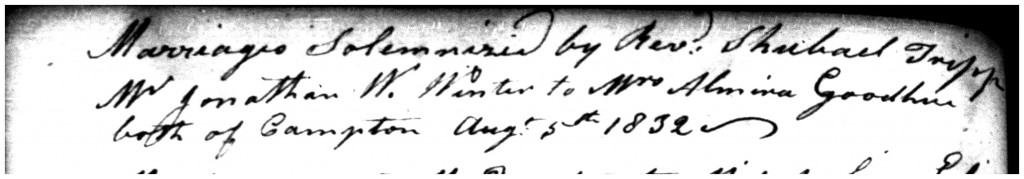 Marriages Solemnized by Rev.d Shubael Tripp
Mr Jonathan W. Winter to Mrs Almira Goodhue
both of Campton Aug.t 5th 1832